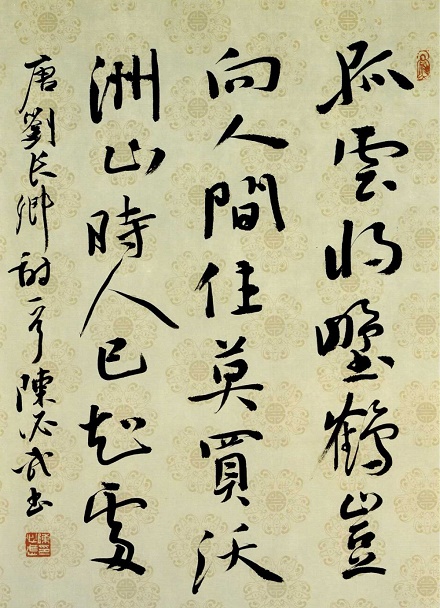 孤雲将墅鶴豈
向人間住莫買沃
洲山時人已知處
唐劉长卿詩一首陳必武书